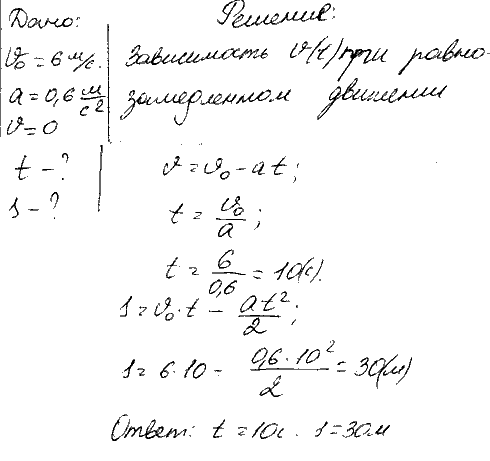 Дано:
V₀ = 6 м/с.
a = 0,6 м/с²
V = 0
t - ?
s - ?
Решение:
Зависимость V(t) при равно-
замедленном движении
V = V₀ - at;
t = V₀/a;
t = 6/0,6 = 10(с).
s = V₀·t - at²/2;
s = 6·10 - 0,6·10²/2 = 30(м)
Ответ: t = 10с. s = 30м